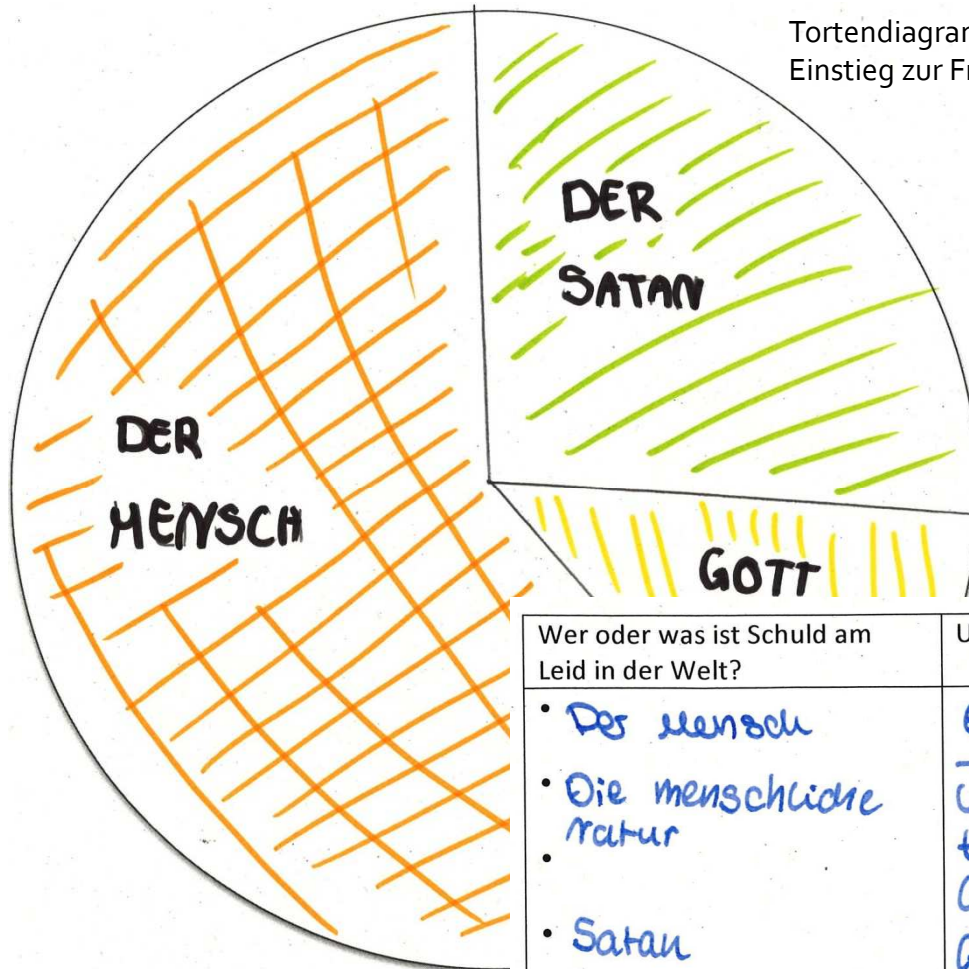 Tortendiagra
Einstieg zur F
DER
SATAN
DER
MENSCH
GOTT
Wer oder was ist Schuld am
Leid in der Welt?
• Der Mensch
• Die menschliche
Natur
•
• Satan